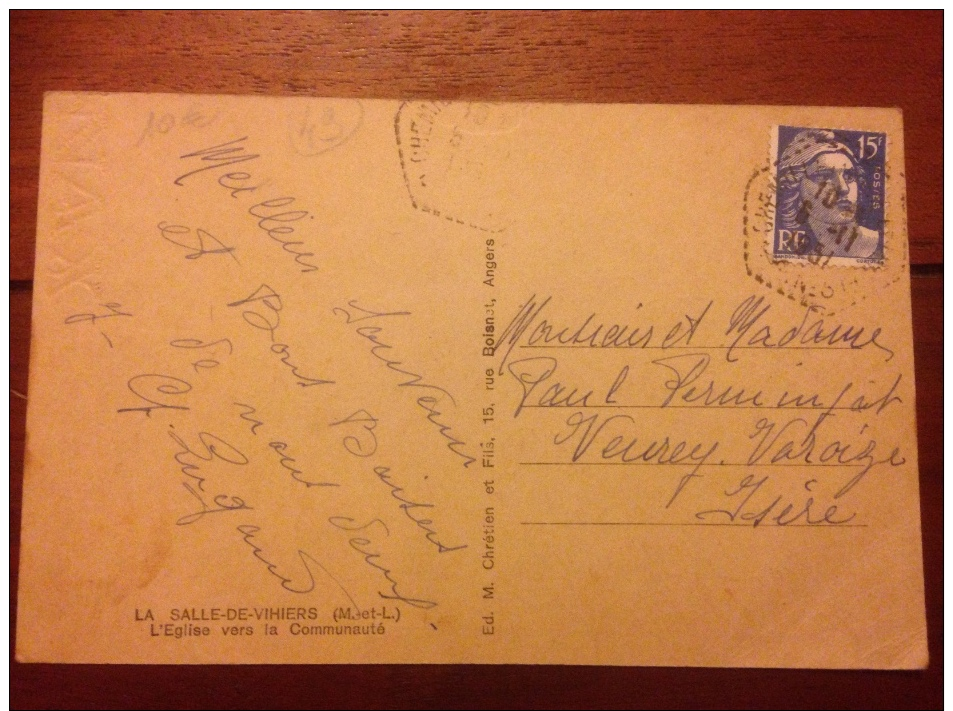 10
49
Meilleurs Souvenirs
et Bons Baisers
de nous deux
LA SALLE-DE-VIHIERS (M.-et-L.)
L'Eglise vers la Communauté
Ed. M. Chrétien et Fils, 15, rue Boisnet, Angers
15F
POSTES
RF
10
6 -11
Monsieur et Madame
Paul
Veurey. Voroize
Isère